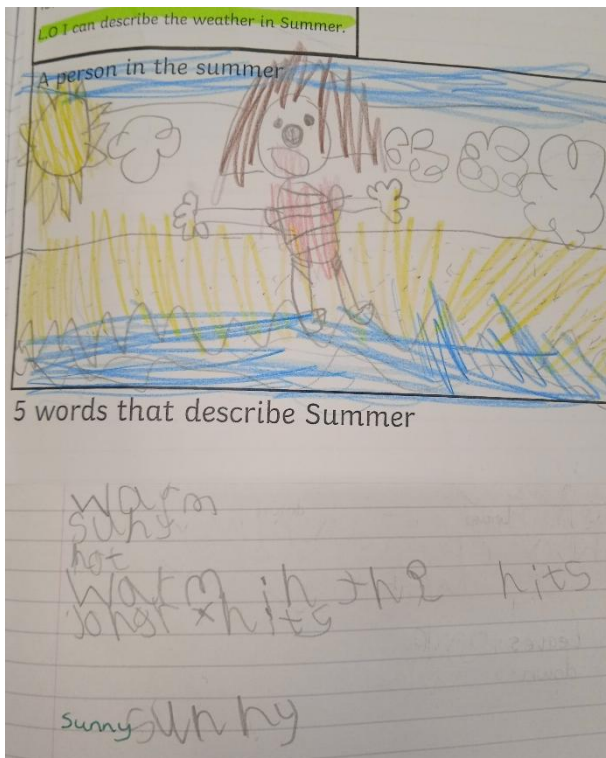 L.O I can describe the weather in Summer.
A person in the summer
5 words that describe Summer
warm
suny
hot
warm in the hits
longr hits
sunny sunny